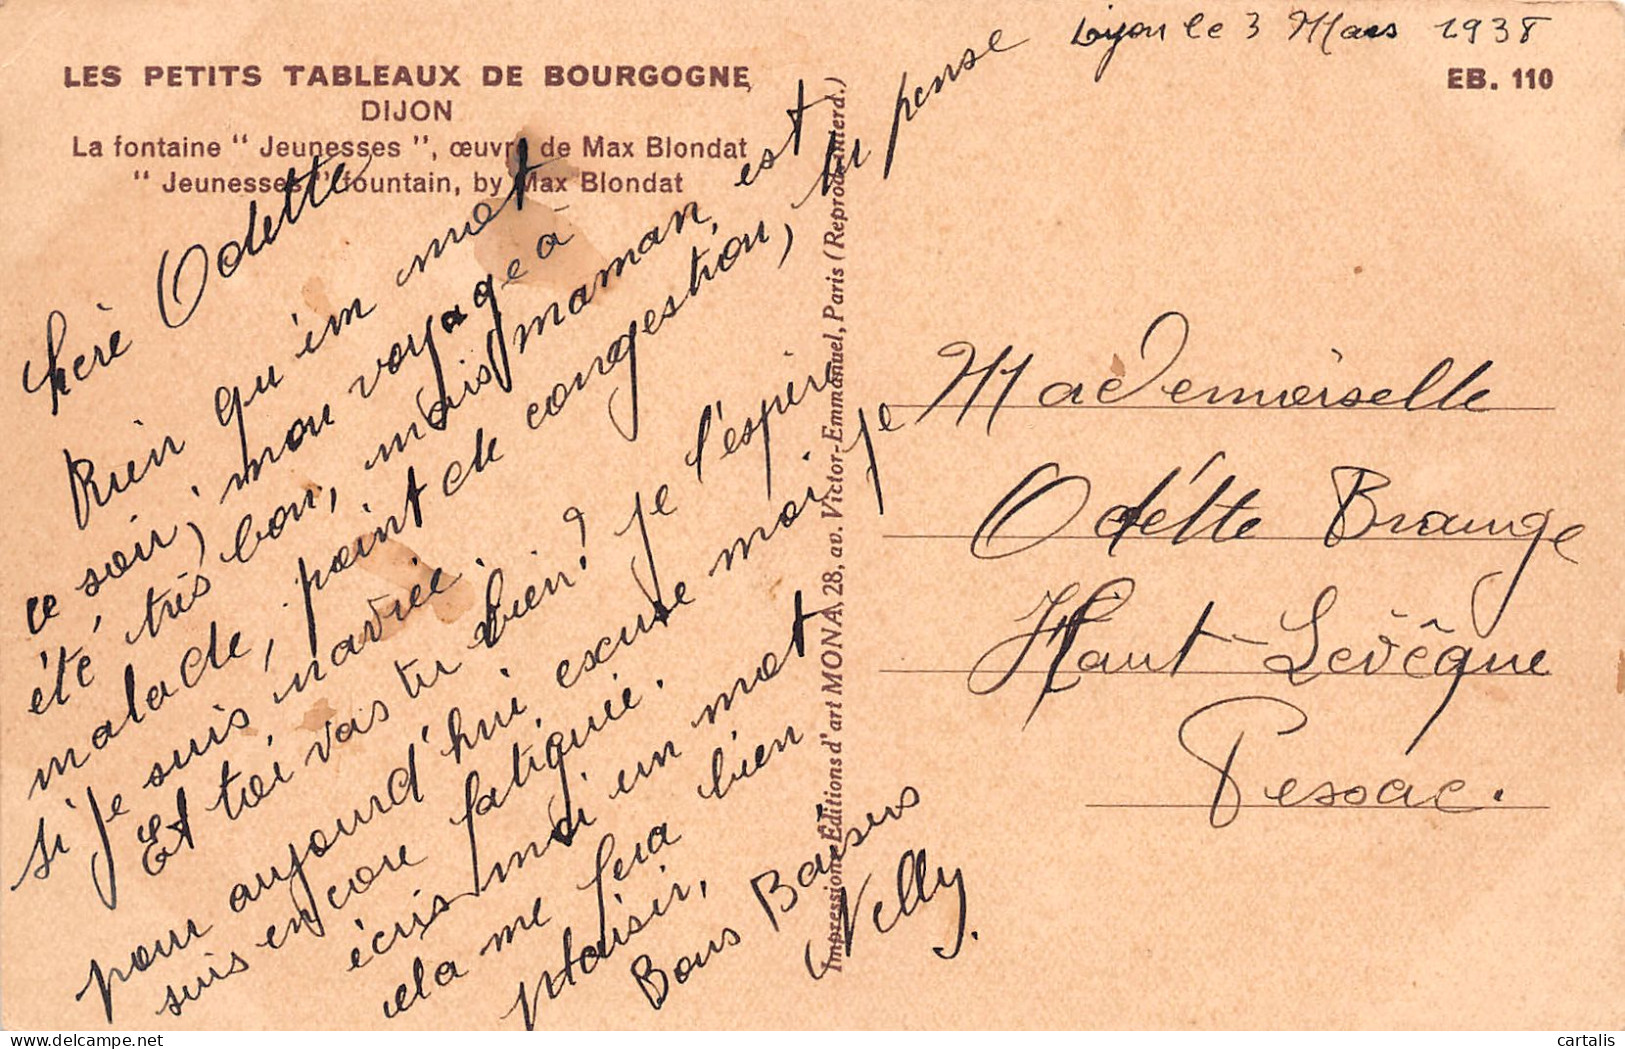 Dijon le 3 Mars 1938
LES PETITS TABLEAUX DE BOURGOGNE
EB. 110
DIJON
La fontaine “ Jeunesses ”, œuvre de Max Blondat
“ Jeunesses ” fountain, by Max Blondat
chère Odette
Rien qu'un mot
ce soir, mon voyage à
été très bon, mais maman est
malade, point de congestion, tu pense
si je suis navrée.
Et toi vas tu bien? je l'espère
pour aujourd'hui excuse moi je
suis encore fatiguée.
écris moi un mot
cela me fera bien
plaisir,
Bons Baisers
Nelly
Impressions Editions d'art MONA, 28, av. Victor-Emmanuel, Paris (Reprod. interd.)
Mademoiselle
Odétte Brange
Haut-Levêque
Pessac.
cartalis